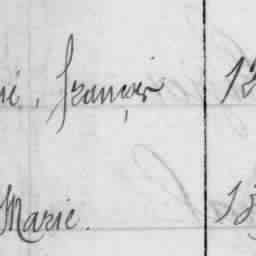 François 12
Marie. 18